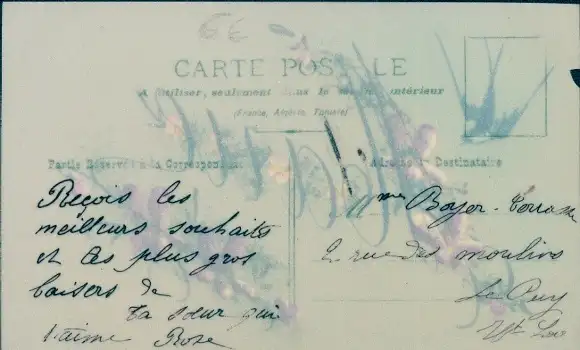 6 E
CARTE POSTALE
à utiliser, seulement dans le service intérieur
(France, Algérie, Tunisie)
Partie Réservée à la Correspondance
Adresse du Destinataire
Reçois les
meilleurs souhaits
et les plus gros
baisers de
ta sœur qui
t'aime Rose
Mme Boyer-Terrasse
2 rue des moulins
Le Puy
Hte Loire